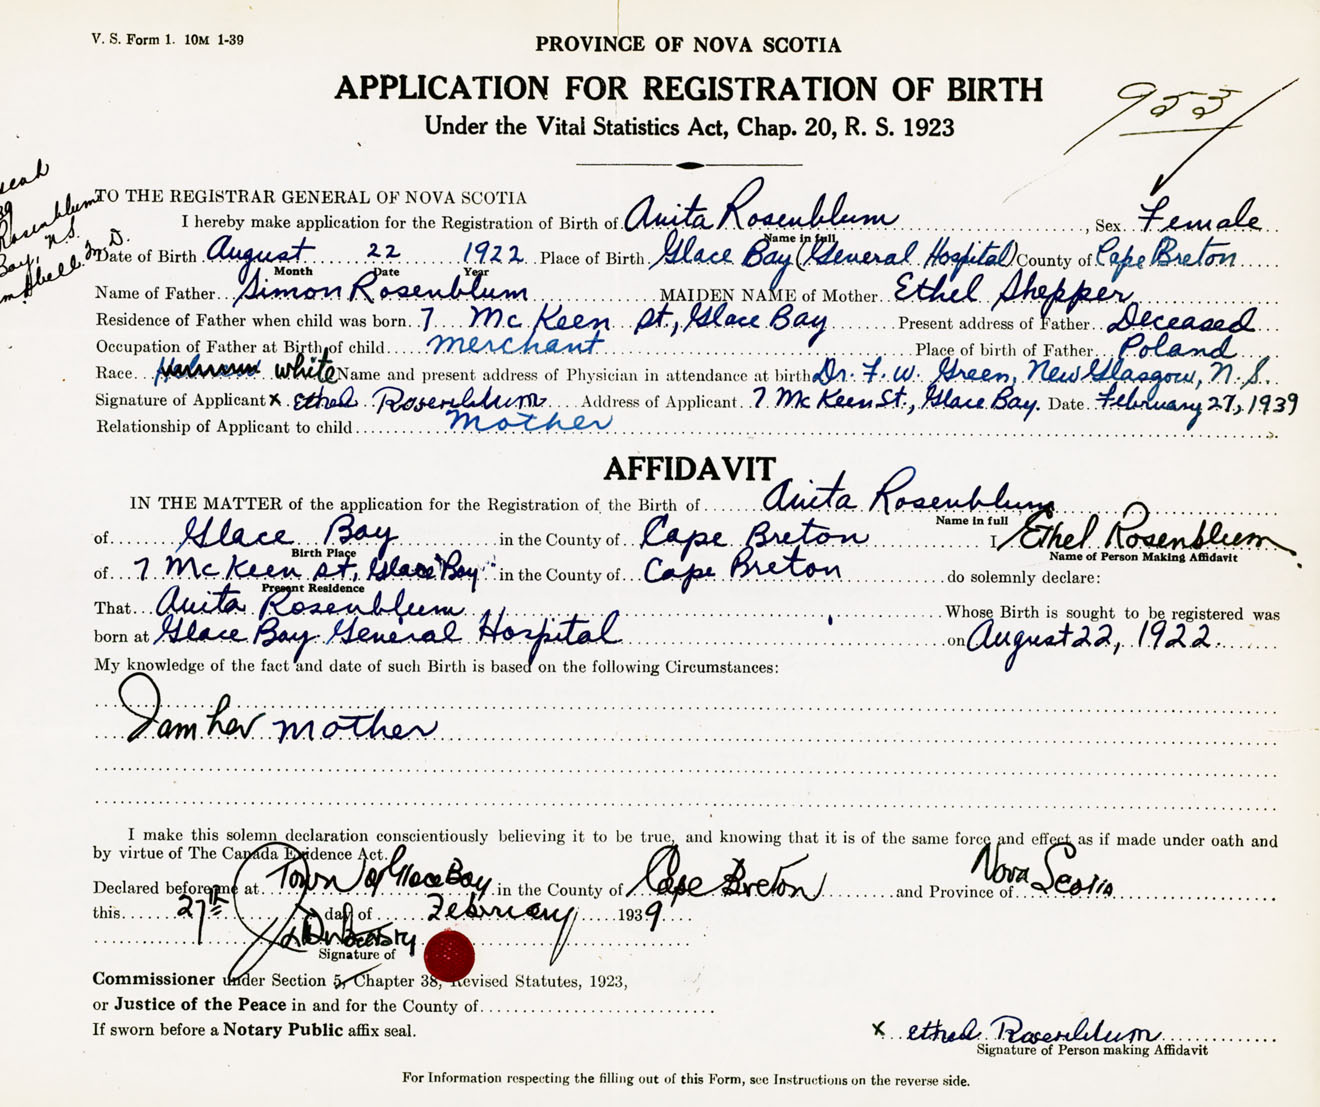 V. S. Form 1. 10M 1-39
PROVINCE OF NOVA SCOTIA
APPLICATION FOR REGISTRATION OF BIRTH
Under the Vital Statistics Act, Chap. 20, R. S. 1923
953
Rosenblum
Bay, N.S.
M.D.
TO THE REGISTRAR GENERAL OF NOVA SCOTIA
I hereby make application for the Registration of Birth of Anita Rosenblum, Sex Female
Name in full
Date of Birth August 22 1922 Place of Birth Glace Bay (General Hospital) County of Cape Breton
Month Date Year
Name of Father Simon Rosenblum MAIDEN NAME of Mother Ethel Shepper
Residence of Father when child was born 7 McKeen St., Glace Bay Present address of Father Deceased
Occupation of Father at Birth of child merchant Place of birth of Father Poland
Race white Name and present address of Physician in attendance at birth Dr. F. W. Green, New Glasgow, N.S.
Signature of Applicant x Ethel Rosenblum Address of Applicant 7 McKeen St., Glace Bay. Date February 27, 1939
Relationship of Applicant to child Mother
AFFIDAVIT
IN THE MATTER of the application for the Registration of the Birth of Anita Rosenblum
Name in full
of Glace Bay in the County of Cape Breton I Ethel Rosenblum
Birth Place Name of Person Making Affidavit
of 7 McKeen St, Glace Bay in the County of Cape Breton do solemnly declare:
Present Residence
That Anita Rosenblum Whose Birth is sought to be registered was
born at Glace Bay General Hospital on August 22, 1922.
My knowledge of the fact and date of such Birth is based on the following Circumstances:
I am her mother
I make this solemn declaration conscientiously believing it to be true, and knowing that it is of the same force and effect as if made under oath and
by virtue of The Canada Evidence Act.
Declared before me at Town of Glace Bay in the County of Cape Breton and Province of Nova Scotia
this 27th day of February 1939
Signature of
Commissioner under Section 5, Chapter 38, Revised Statutes, 1923,
or Justice of the Peace in and for the County of
If sworn before a Notary Public affix seal.
x Ethel Rosenblum
Signature of Person making Affidavit
For Information respecting the filling out of this Form, see Instructions on the reverse side.